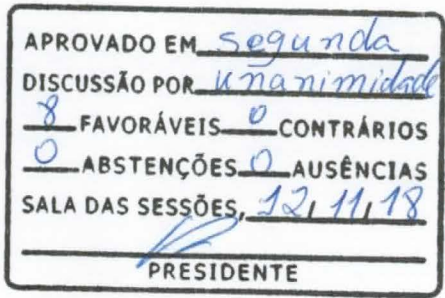 APROVADO EM segunda
DISCUSSÃO POR unanimidade
8 FAVORÁVEIS 0 CONTRÁRIOS
0 ABSTENÇÕES 0 AUSÊNCIAS
SALA DAS SESSÕES, 12, 11, 18
PRESIDENTE